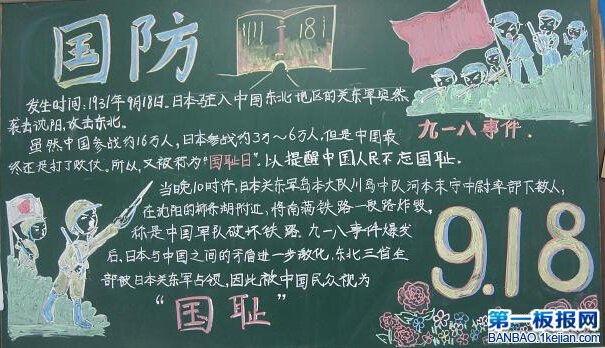 国防
1931 9 18
发生时间:1931年9月18日.日本驻入中国东北地区的关东军突然
袭击沈阳,攻击东北。
虽然中国参战约16万人,日本参战约3万～6万人,但是中国最
终还是打了败仗。所以,又被称为"国耻日".以提醒中国人民不忘国耻.
九一八事件.
当晚10时许,日本关东军岛本大队川岛中队河本末守中尉率部下数人,
在沈阳的柳条湖附近,将南满铁路一段路炸毁。
称是中国军队破坏铁路.九一八事件爆发
后,日本与中国之间的矛盾进一步激化,东北三省全
部被日本关东军占领,因此被中国民众视为
"国耻"
9.18
第一板报网
BANBAO.1kejian.com